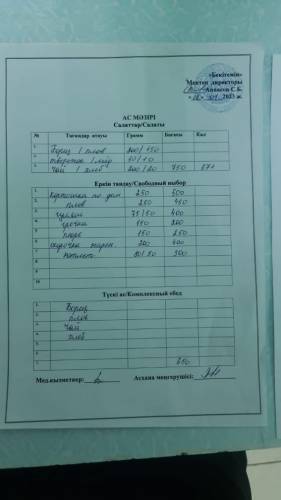 «Бекітемін»
Мектеп директоры
Апаков С.Б.
2023 ж.
АС МӘЗІРІ
Салаттар/Салаты
№ Тағамдар атауы Грамм Бағасы Ккл
1. Борщ / плов 200/150
2. творожок / мёд
3. Чай / хлеб 200/20 750 871
Еркін таңдау/Свободный выбор
1. Картошка по дом 250 500
2. плов 250 450
3. 75/50 400
4. гречка 150 200
5. пюре 150 250
6. 200 400
7. Котлета 300
8.
9.
10.
Түскі ас/Комплексный обед
1. Борщ
2. плов
3. Чай
4. хлеб
5.
6.
7. 650
Мед.қызметкер:
Асхана меңгерушісі: